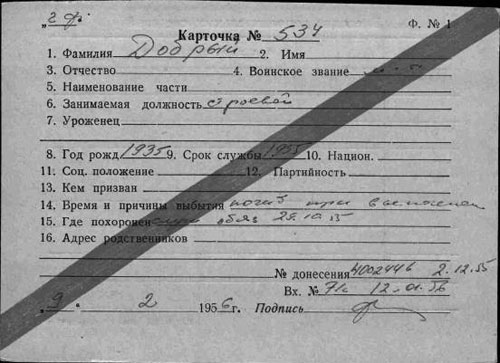 „2 ф." Ф. № 1
Карточка № 534
1. Фамилия Добрый 2. Имя
3. Отчество 4. Воинское звание м-с
5. Наименование части
6. Занимаемая должность строевой
7. Уроженец
8. Год рожд 1935 9. Срок службы 1955 10. Национ.
11. Соц. положение 12. Партийность
13. Кем призван
14. Время и причины выбытия погиб при выполнен
15. Где похоронен обяз 29.10.55
16. Адрес родственников
№ донесения 4002446 2.12.55
Вх. № 71с 12.01.56
„9" 2 1956 г. Подпись